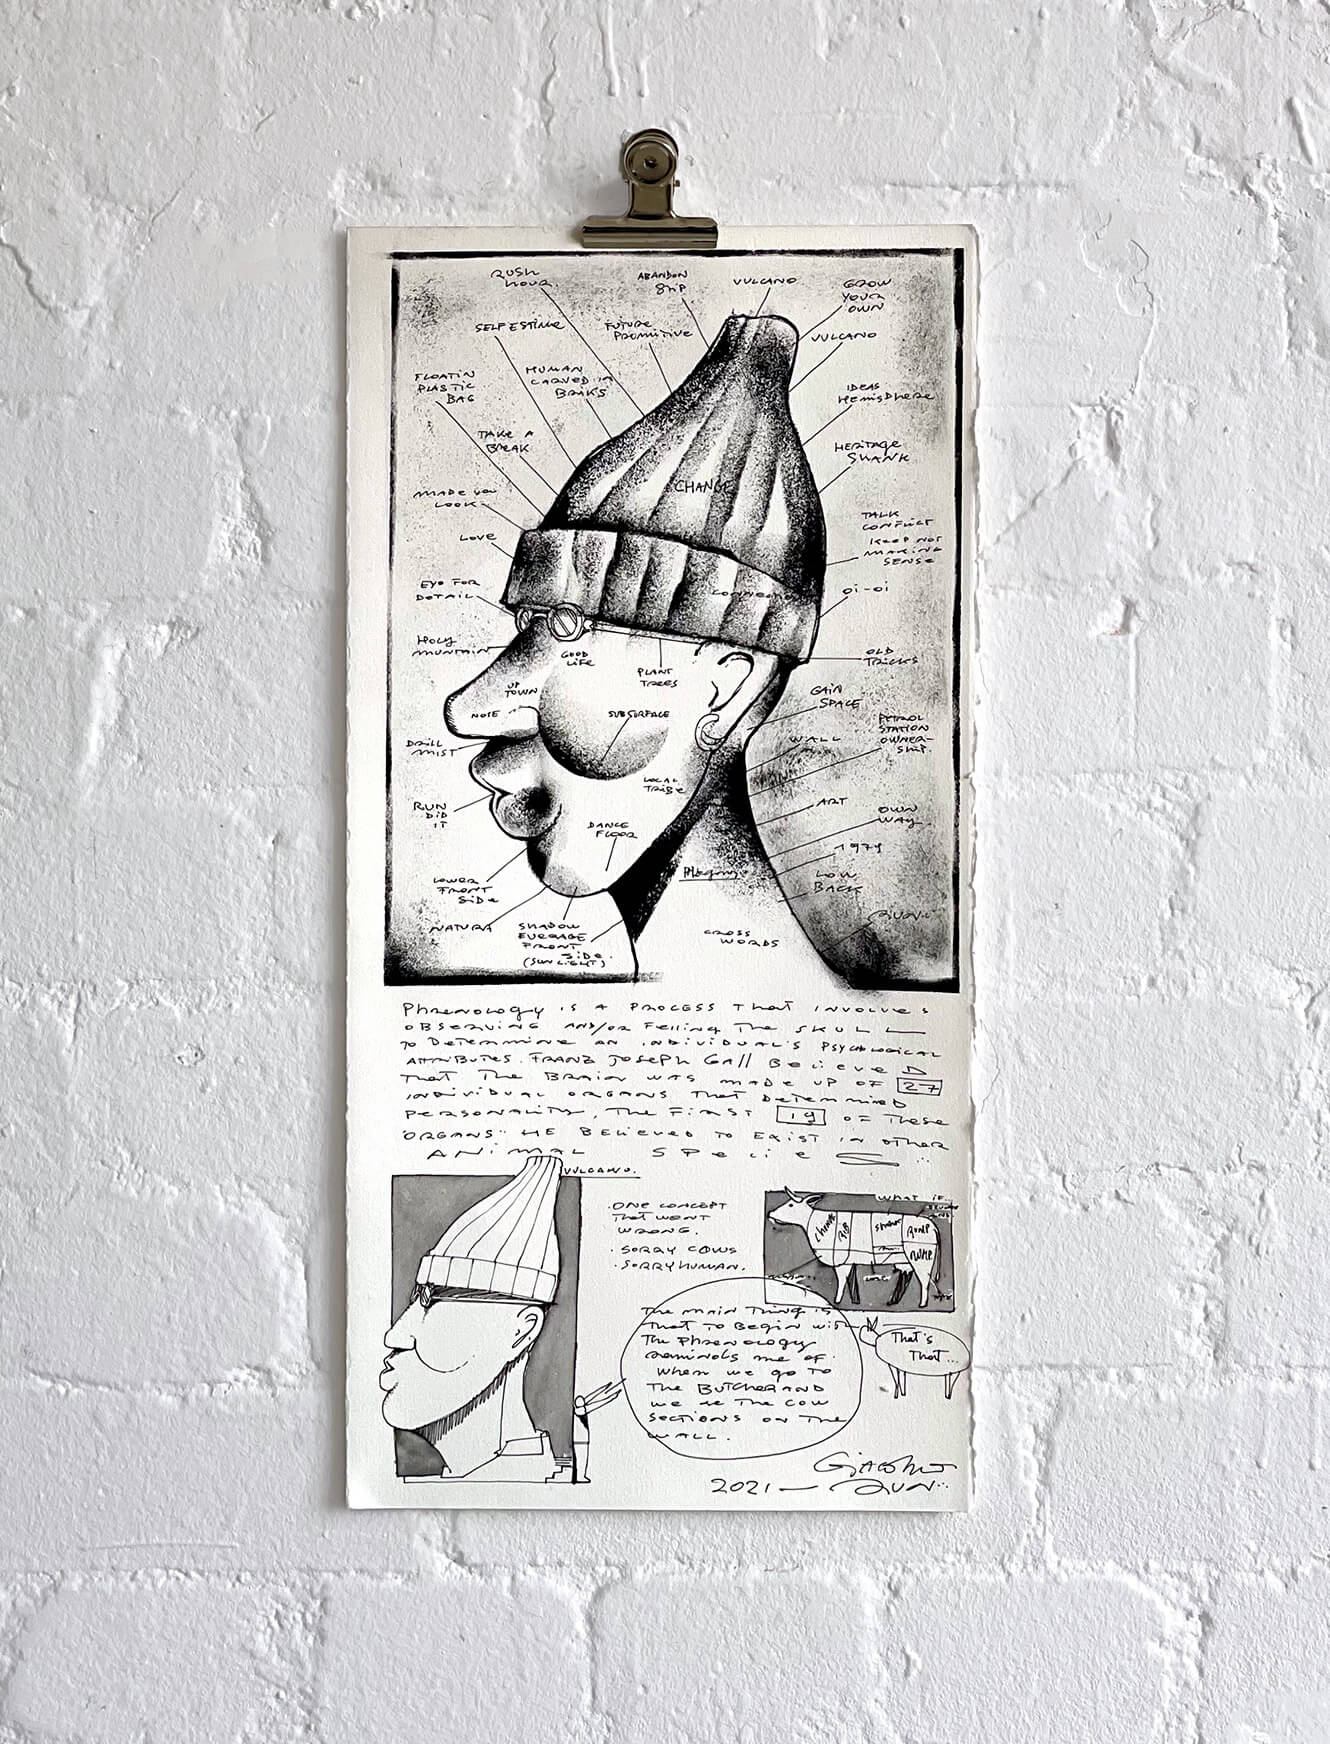 RUSH
HOUR.
ABANDON
VULCANO
GROW
YOUR
OWN
SELF ESTIME
FUTURE
PRIMITIVE
VULCANO
FLOATIN
PLASTIC
BAG
HUMAN
CARVED IN
BRIKS
IDEAS
HEMISPHERE
TAKE A
BREAK
HERITAGE
SHANK
CHANGE
MADE YOU
LOOK
TALK
CONFLICT
KEEP NOT
MAKING
SENSE
LOVE
EYE FOR
DETAIL
OI-OI
HOLY
MUNTAIN
GOOD
LIFE
PLANT
TREES
OLD
TRICKS
UP
TOWN
NOISE
SUBSURFACE
GAIN
SPACE
PETROL
STATION
OWNER-
SHIP.
DRILL
MIST
WALL
LOCAL
TRIBE
RUN
DID
IT
DANCE
FLOOR
ART
OWN
WAY
1979
LOW
BACK
LOWER
FRONT
SIDE
NATURA
SHADOW
EVERAGE
FRONT
SIDE.
(SUNLIGHT)
CROSS
WORDS
PHRENOLOGY IS A PROCESS THAT INVOLVES
OBSERVING AND/OR FELLING THE SKULL
TO DETERMINE AN INDIVIDUAL'S PSYCHOLOGICAL
ATTRIBUTES. FRANZ JOSEPH GALL BELIEVED
THAT THE BRAIN WAS MADE UP OF 27
INDIVIDUAL ORGANS THAT DETERMINED
PERSONALITY, THE FIRST 19 OF THESE
"ORGANS" HE BELIEVED TO EXIST IN OTHER
ANIMAL SPECIES
VULCANO.
ONE CONCEPT
THAT WENT
WRONG.
· SORRY COWS
· SORRY HUMAN.
WHAT IF...
RIB
RUMP
RUMP
THE MAIN THING IS
THAT TO BEGIN WITH
THE PHRENOLOGY
REMINDS ME OF
WHEN WE GO TO
THE BUTCHER AND
WE SE THE COW
SECTIONS ON THE
WALL.
THAT'S
THAT...
GIACOMO
2021 — RUN